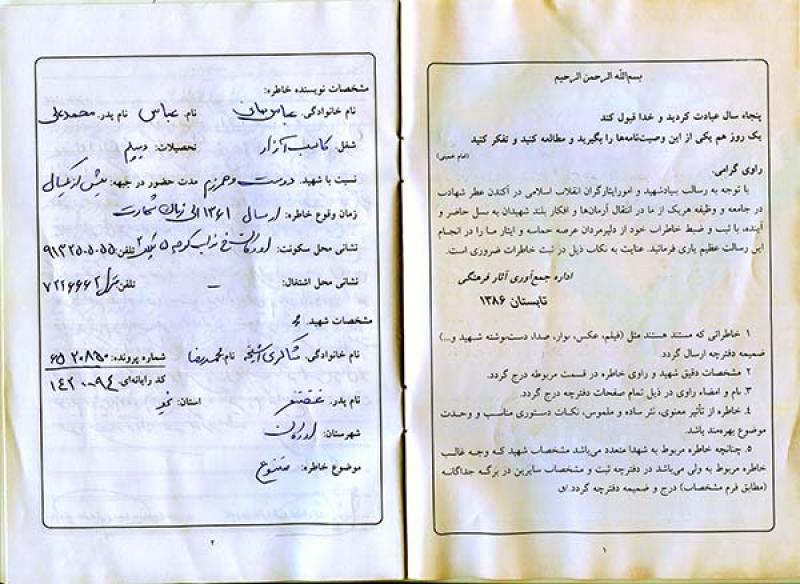 بسم‌الله الرحمن الرحیم
پنجاه سال عبادت کردید و خدا قبول کند
یک روز هم یکی از این وصیت‌نامه‌ها را بگیرید و مطالعه کنید و تفکر کنید
(امام خمینی)
راوی گرامی.
با توجه به رسالت بنیادشهید و امورایثارگران انقلاب اسلامی در آکندن عطر شهادت
در جامعه و وظیفه هریک از ما در انتقال آرمان‌ها و افکار بلند شهیدان به نسل حاضر و
آینده، با ثبت و ضبط خاطرات خود از دلیرمردان عرصه حماسه و ایثار ما را در انجام
این رسالت عظیم یاری فرمائید. عنایت به نکات ذیل در ثبت خاطرات ضروری است.
اداره جمع‌آوری آثار فرهنگی
تابستان ۱۳۸۶
۱. خاطراتی که مستند هستند مثل (فیلم، عکس، نوار، صدا، دست‌نوشته شهید و...)
ضمیمه دفترچه ارسال گردد.
۲. مشخصات دقیق شهید و راوی خاطره در قسمت مربوطه درج گردد.
۳. نام و امضاء راوی در ذیل تمام صفحات دفترچه درج گردد.
۴. خاطره از تأثیر معنوی، نثر ساده و ملموس، نکات دستوری مناسب و وحدت
موضوع بهره‌مند باشد.
۵. چنانچه خاطره مربوط به شهدا متعدد می‌باشد مشخصات شهید که وجه غالب
خاطره مربوط به ولی می‌باشد در دفترچه ثبت و مشخصات سایرین در برگه جداگانه
(مطابق فرم مشخصات) درج و ضمیمه دفترچه گردد./ق
۱
مشخصات نویسنده خاطره:
نام خانوادگی: نام: عباس نام پدر: محمدعلی
شغل: کاسب آزاد تحصیلات: دیپلم
نسبت با شهید: دوست و همرزم مدت حضور در جبهه: بیش از یکسال
زمان وقوع خاطره: از سال ۱۳۶۱ الی زمان شهادت
نشانی محل سکونت: اردکان کوچه ۵ تلفن: ۹۱۳۲۵۰۵۰۵۵
نشانی محل اشتغال: – تلفن منزل ۷۲۲۶۶۶۲
مشخصات شهید:
نام خانوادگی: شاکری نام: محمدرضا شماره پرونده: ۶۵۲۰۸۵۰
کد رایانه‌ای: ۱۴۲۰۰۹۴
نام پدر: غضنفر استان: یزد
شهرستان: اردکان
موضوع خاطره: متنوع
۲